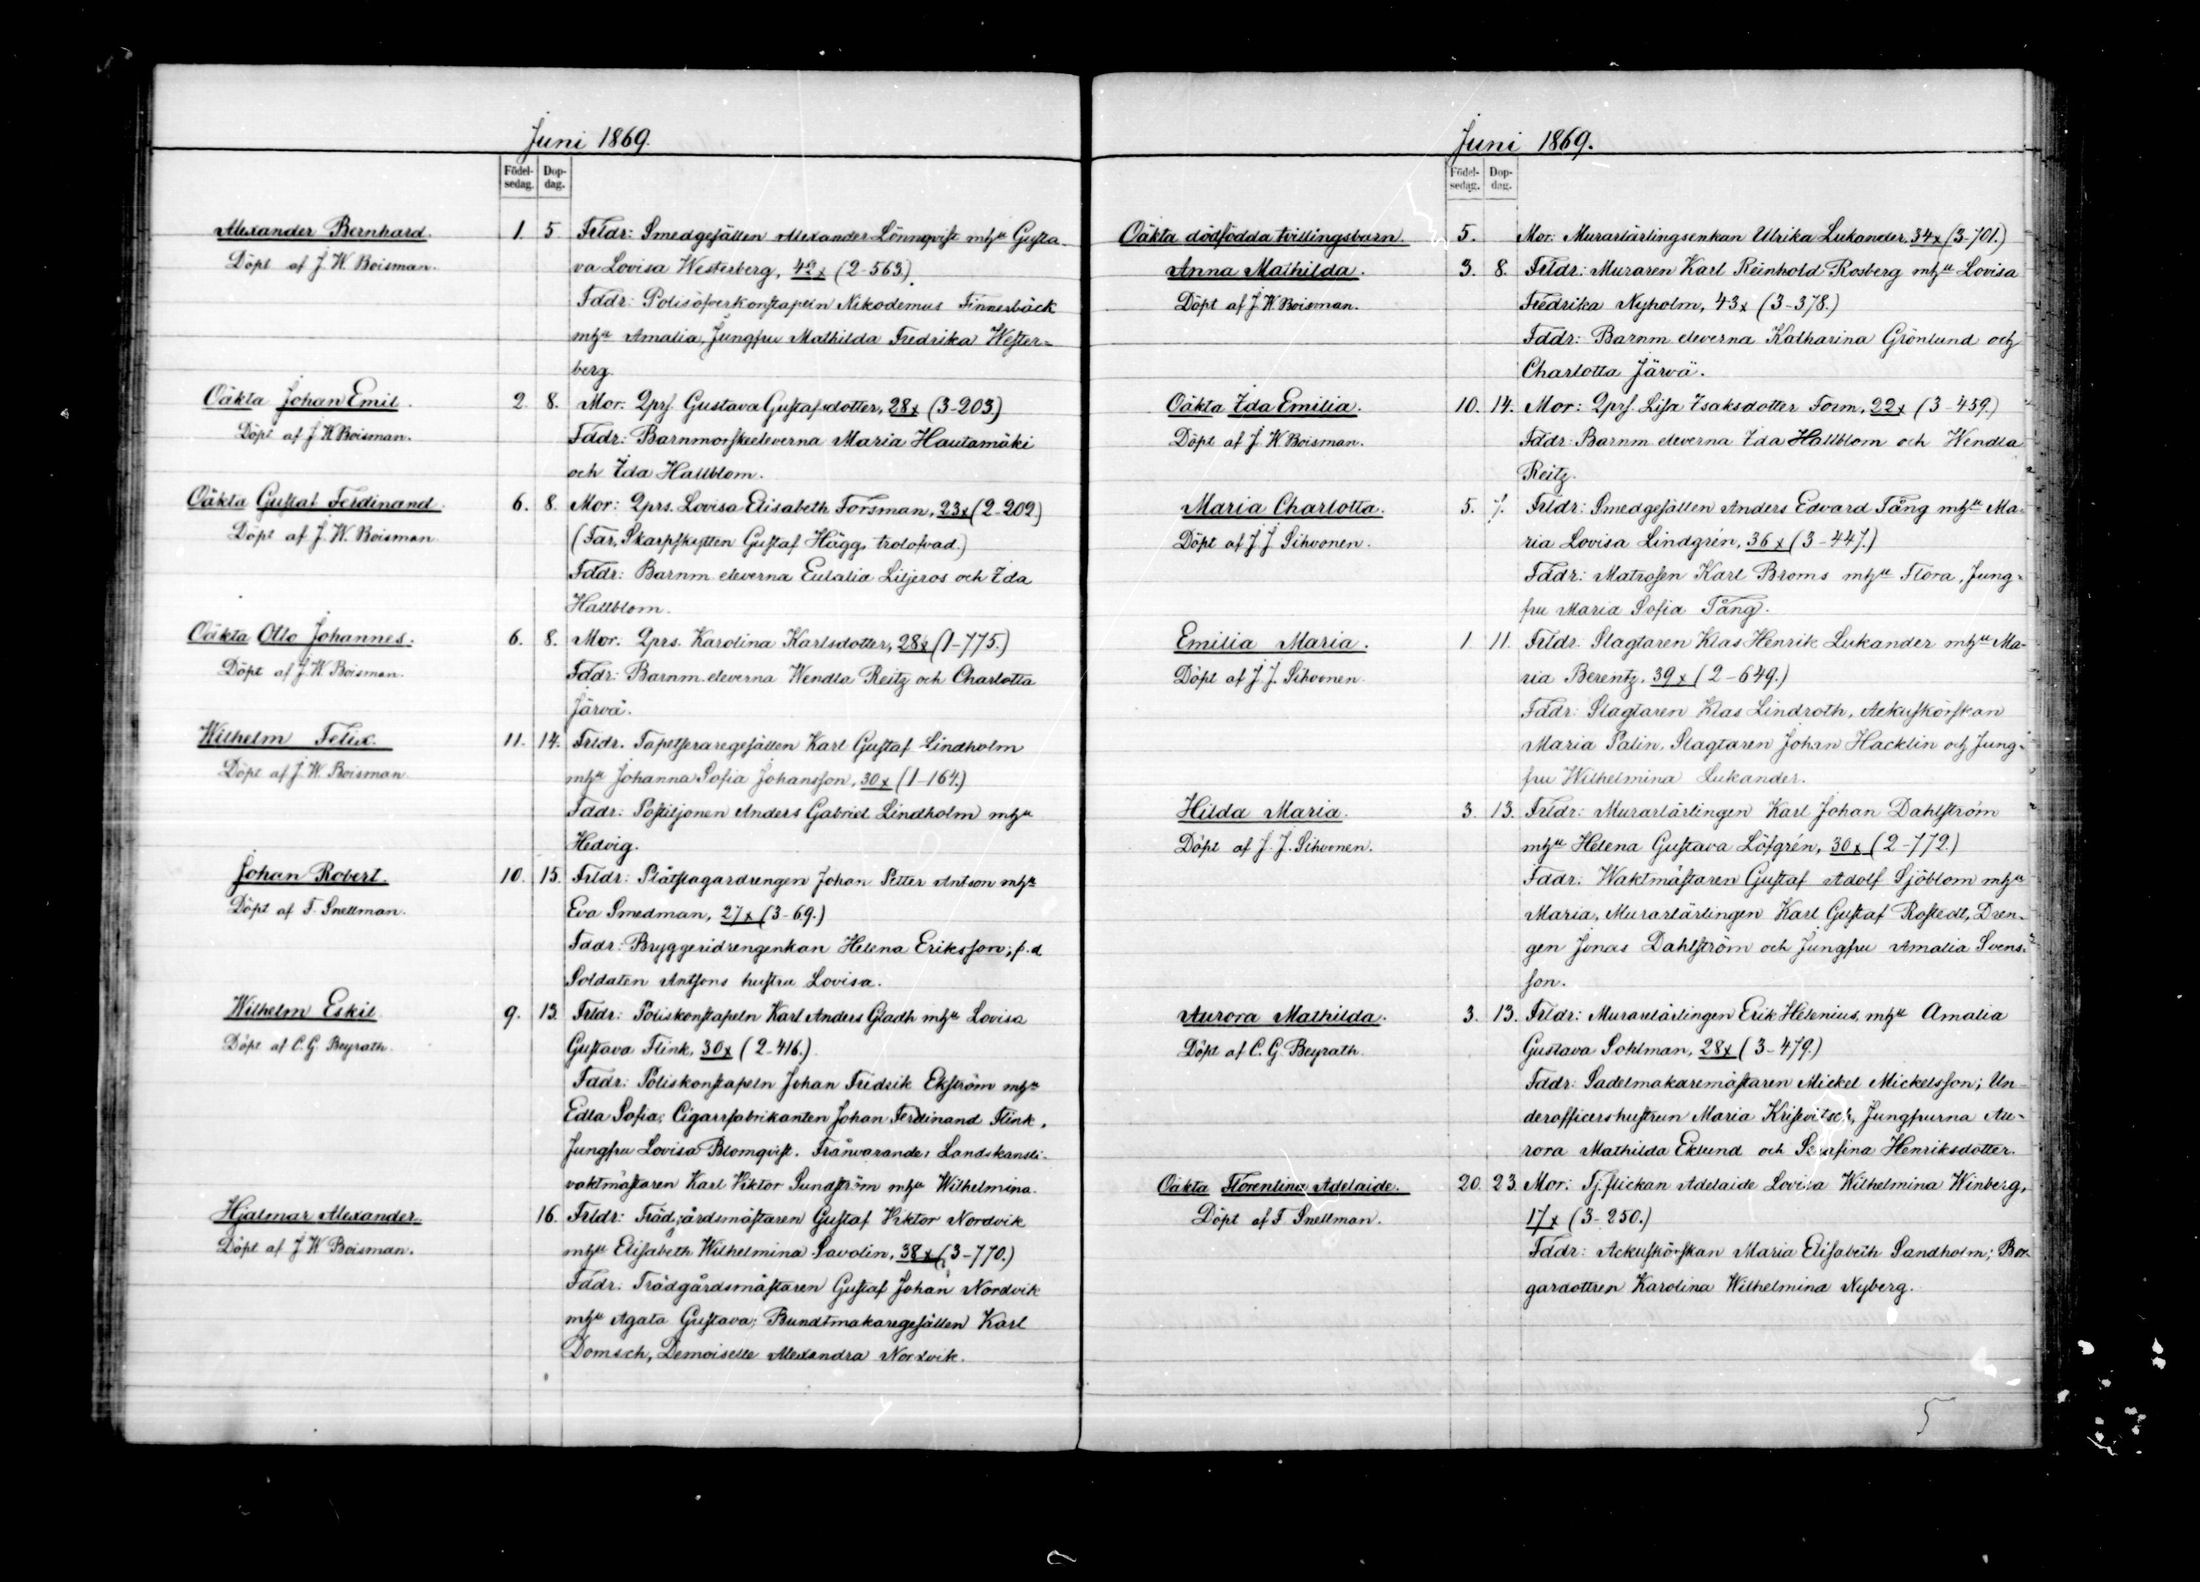 Juni 1869.
Födel-
sedag.
Dop-
dag.
Alexander Bernhard. 1. 5. Frldr: Smedgesällen Alexander Lönnqvist mhu Gusta-
Döpt af J. W. Boisman. va Lovisa Westerberg, 42x (2-563.)
Fddr: Polisöfverkonstapeln Nikodemus Finnerbäck
mhu Amalia, Jungfru Mathilda Fredrika Wester-
berg.
Oäkta Johan Emil. 2. 8. Mor: Qprs. Gustava Gustafsdotter, 28x (3-203)
Döpt af J. W. Boisman. Fddr: Barnmorskeeleverna Maria Hautamäki
och Ida Hallblom.
Oäkta Gustaf Ferdinand. 6. 8. Mor: Qprs. Lovisa Elisabeth Forsman, 23x (2-202)
Döpt af J. W. Boisman (Far, Skarpskytten Gustaf Hägg, trolofvad.)
Fddr: Barnm. eleverna Eulalia Liljeros och Ida
Hallblom.
Oäkta Otto Johannes. 6. 8. Mor: Qprs. Karolina Karlsdotter, 28x (1-775.)
Döpt af J. W. Boisman. Fddr: Barnm. eleverna Wendla Reitz och Charlotta
Järvä.
Wilhelm Felix. 11. 14. Frldr. Tapetseraregesällen Karl Gustaf Lindholm
Döpt af J. W. Boisman mhu Johanna Sofia Johansson, 30x (1-164.)
Fddr: Postiljonen Anders Gabriel Lindholm mhu
Hedvig.
Johan Robert. 10. 15. Frldr: Plåtslagardrengen Johan Petter Antson mhu
Döpt af F. Snellman. Eva Smedman, 27x (3-69.)
Fddr: Bryggeridrengenkan Helena Eriksson; f.d.
Soldaten Antsons hustru Lovisa.
Wilhelm Eskil 9. 13. Frldr: Poliskonstapeln Karl Anders Gladh mhu Lovisa
Döpt af C. G. Beyrath. Gustava Flink, 30x (2-416.)
Fddr: Poliskonstapeln Johan Fredrik Ekström mhu
Edla Sofia; Cigarrfabrikanten Johan Ferdinand Flink,
Jungfru Lovisa Blomqvist. Frånvarande: Landskansli-
vaktmästaren Karl Viktor Sundström mhu Wilhelmina.
Hjalmar Alexander 16. Frldr: Trädgårdsmästaren Gustaf Viktor Nordvik
Döpt af J. W. Boisman. mhu Elisabeth Wilhelmina Savolin, 38x (3-770.)
Fddr: Trädgårdsmästaren Gustaf Johan Nordvik
mhu Agata Gustava; Bundtmakaregesällen Karl
Domsch, Demoiselle Alexandra Nordvik.
Juni 1869.
Födel-
sedag.
Dop-
dag.
Oäkta dödfödda tvillingsbarn. 5. Mor: Murarlärlingsenkan Ulrika Lukander, 34x (3-701.)
Anna Mathilda. 3. 8. Frldr: Muraren Karl Reinhold Rosberg mhu Lovisa
Döpt af J. W. Boisman. Fredrika Nyholm, 43x (3-378.)
Fddr: Barnm. eleverna Katharina Grönlund och
Charlotta Järvä.
Oäkta Ida Emilia. 10. 14. Mor: Qprs. Lisa Isaksdotter Form, 22x (3-459.)
Döpt af J. W. Boisman. Fddr: Barnm. eleverna Ida Hallblom och Wendla
Reitz.
Maria Charlotta. 5. 7. Frldr: Smedgesällen Anders Edvard Tång mhu Ma-
Döpt af J. J. Sihvonen. ria Lovisa Lindgrén, 36x (3-447.)
Fddr: Matrosen Karl Broms mhu Flora, Jung-
fru Maria Sofia Tång.
Emilia Maria. 1. 11. Frldr: Slagtaren Klas Henrik Lukander mhu Ma-
Döpt af J. J. Sihvonen. ria Berentz, 39x (2-649.)
Fddr: Slagtaren Klas Lindroth, Ackuskörskan
Maria Palin, Slagtaren Johan Hacklin och Jung-
fru Wilhelmina Lukander.
Hilda Maria. 3. 13. Frldr: Murarlärlingen Karl Johan Dahlström
Döpt af J. J. Sihvonen. mhu Helena Gustava Löfgrén, 30x (2-772.)
Fddr: Waktmästaren Gustaf Adolf Sjöblom mhu
Maria, Murarlärlingen Karl Gustaf Rostedt, Dren-
gen Jonas Dahlström och Jungfru Amalia Svens-
son.
Aurora Mathilda. 3. 13. Frldr: Murarelärlingen Erik Helenius, mhu Amalia
Döpt af C. G. Beyrath. Gustava Sohlman, 28x (3-479.)
Fddr: Sadelmakaremästaren Mickel Mickelsson; Un-
derofficershustrun Maria Krisevitsch, Jungfrurna Au-
rora Mathilda Eklund och Serafina Henriksdotter.
Oäkta Florentina Adelaide. 20. 23. Mor: Tj.flickan Adelaide Lovisa Wilhelmina Winberg,
Döpt af F. Snellman. 17x (3-250.)
Fddr: Ackuskörskan Maria Elisabeth Sandholm; Bor-
gardottren Karolina Wilhelmina Nyberg.
5